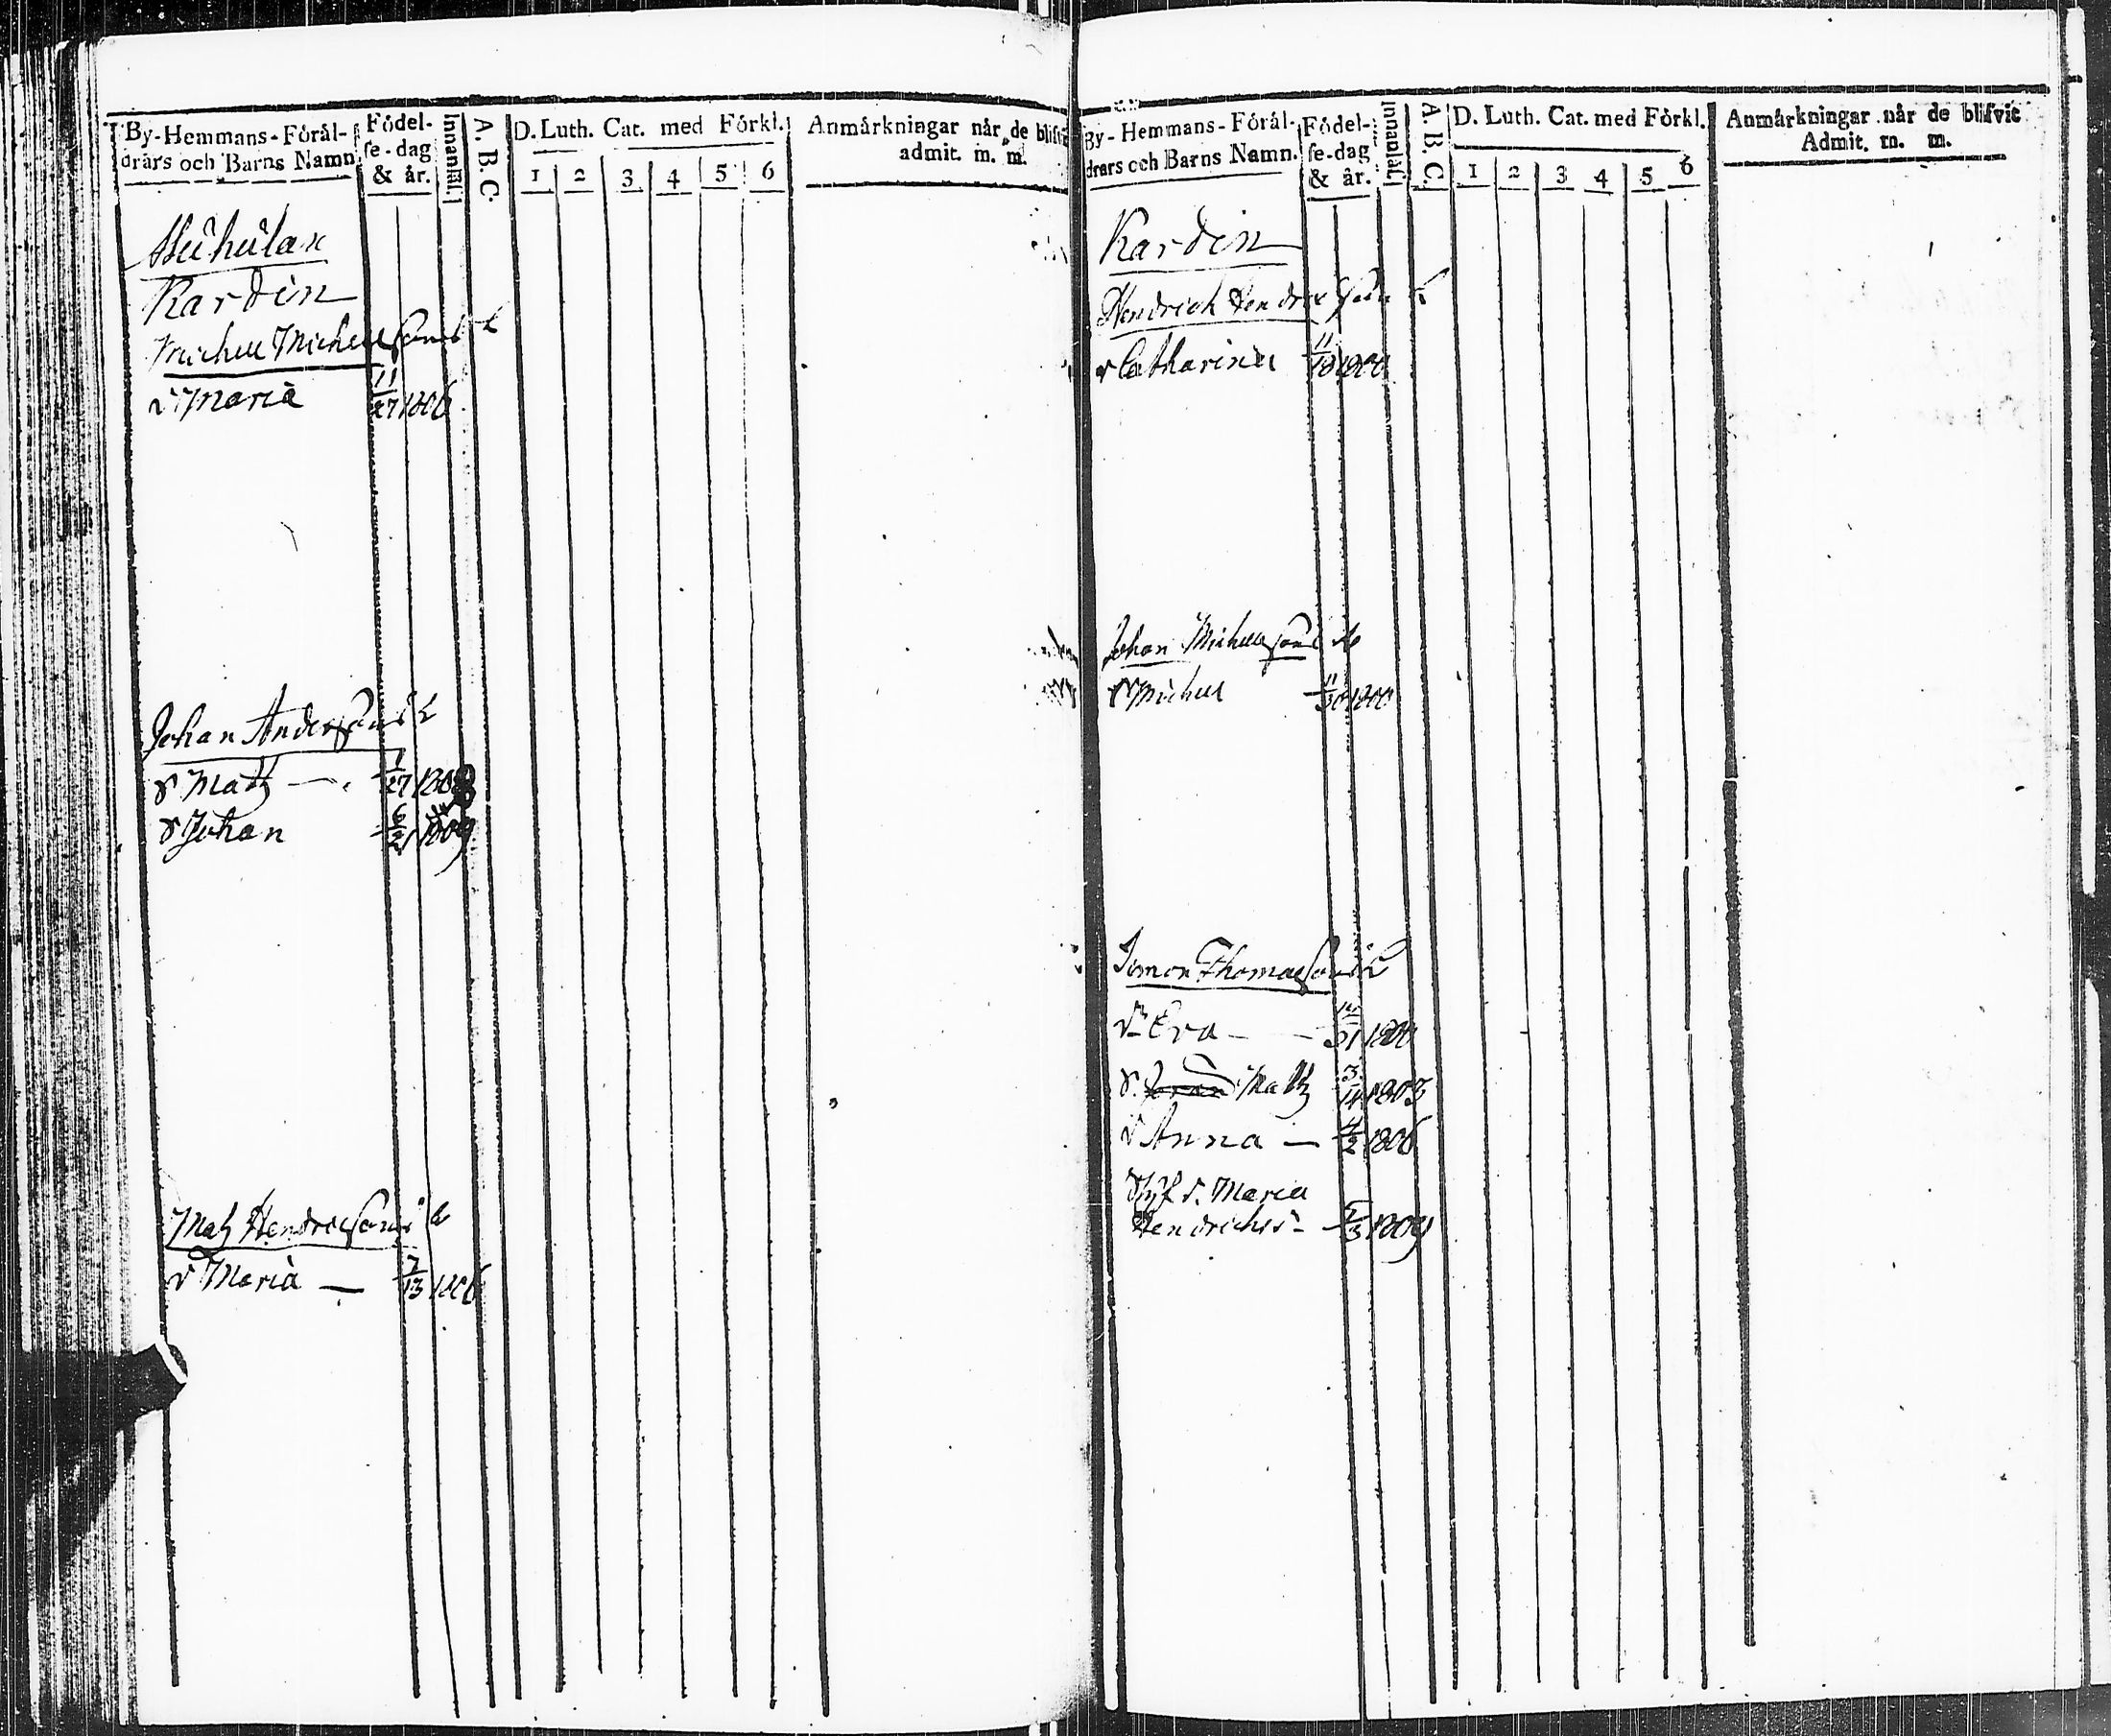 By-Hemmans-Förál-
drars och Barns Namn
Födel-
se-dag
& år.
Innanläs.
A. B. C.
D. Luth. Cat. med Förkl.
1 2 3 4 5 6
Anmärkningar när de blifvit
admit. m. m.
Kardin
Michell Michellssons
d Maria 11/27 1806
Johan Anderssons
s Matz — 1/27 1808
s Johan 6/21 1809
Matz Hendricssons
d Maria — 7/13 1806
By-Hemmans-Förál-
drars och Barns Namn.
Födel-
se-dag
& år.
Innanläs.
A. B. C.
D. Luth. Cat. med Förkl.
1 2 3 4 5 6
Anmärkningar när de blifvit
Admit. m. m.
Kardin
Hendrich
d Catharina 11/18 1800
Johan Michelssons
s Michel 11/30 1800
Simon Thomassons
d Eva — 1800
s. Matz 3/14 1803
d Anna — 4/2 1806
d. Maria
Hendrichs 1809